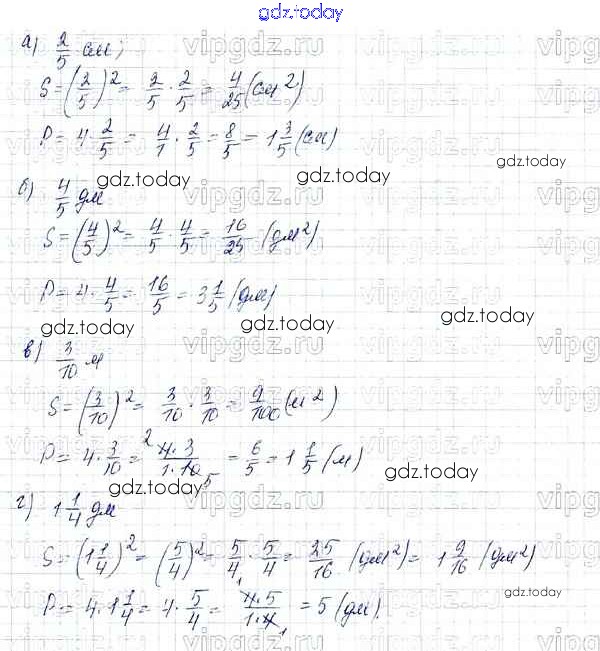 gdz.today
а) 2/5 см;
S = (2/5)² = 2/5 · 2/5 = 4/25 (см²)
P = 4 · 2/5 = 4/1 · 2/5 = 8/5 = 1 3/5 (см)
gdz.today gdz.today gdz.today
б) 4/5 дм
S = (4/5)² = 4/5 · 4/5 = 16/25 (дм²)
P = 4 · 4/5 = 16/5 = 3 1/5 (дм)
gdz.today gdz.today gdz.today
в) 3/10 м
S = (3/10)² = 3/10 · 3/10 = 9/100 (м²)
P = 4 · 3/10 = ²4·3/1·10₅ = 6/5 = 1 1/5 (м)
gdz.today gdz.today gdz.today
г) 1 1/4 дм
S = (1 1/4)² = (5/4)² = 5/4 · 5/4 = 25/16 (дм²) = 1 9/16 (дм²)
P = 4 · 1 1/4 = 4 · 5/4 = 4·5/1·4₁ = 5 (дм).
vipgdz.ru